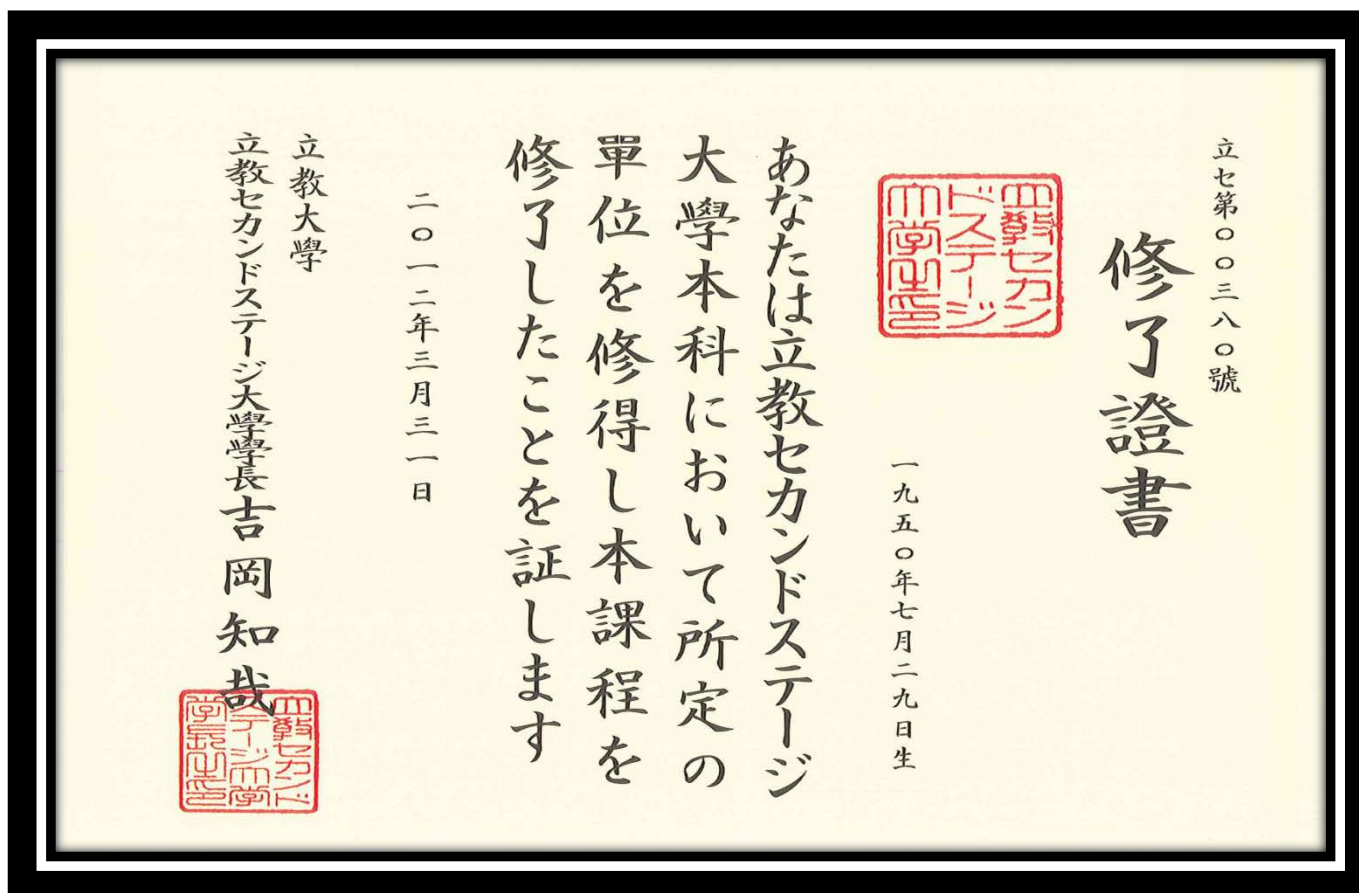 立セ第〇〇三八〇號
修了證書
一九五〇年七月二九日生
立教セカン
ドステージ
大学之印
あなたは立教セカンドステージ
大學本科において所定の
單位を修得し本課程を
修了したことを証します
二〇一二年三月三一日
立教大學
立教セカンドステージ大學學長吉岡知哉
立教セカンド
ステージ大学
学長之印